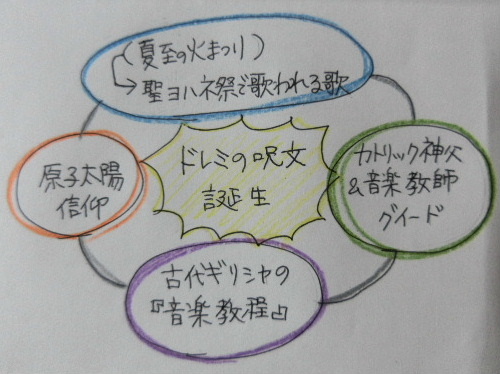 (夏至の火まつり)
→聖ヨハネ祭で歌われる歌
ドレミの呪文
誕生
原子太陽
信仰
カトリック神父
&音楽教師
グイード
古代ギリシャの
『音楽教程』